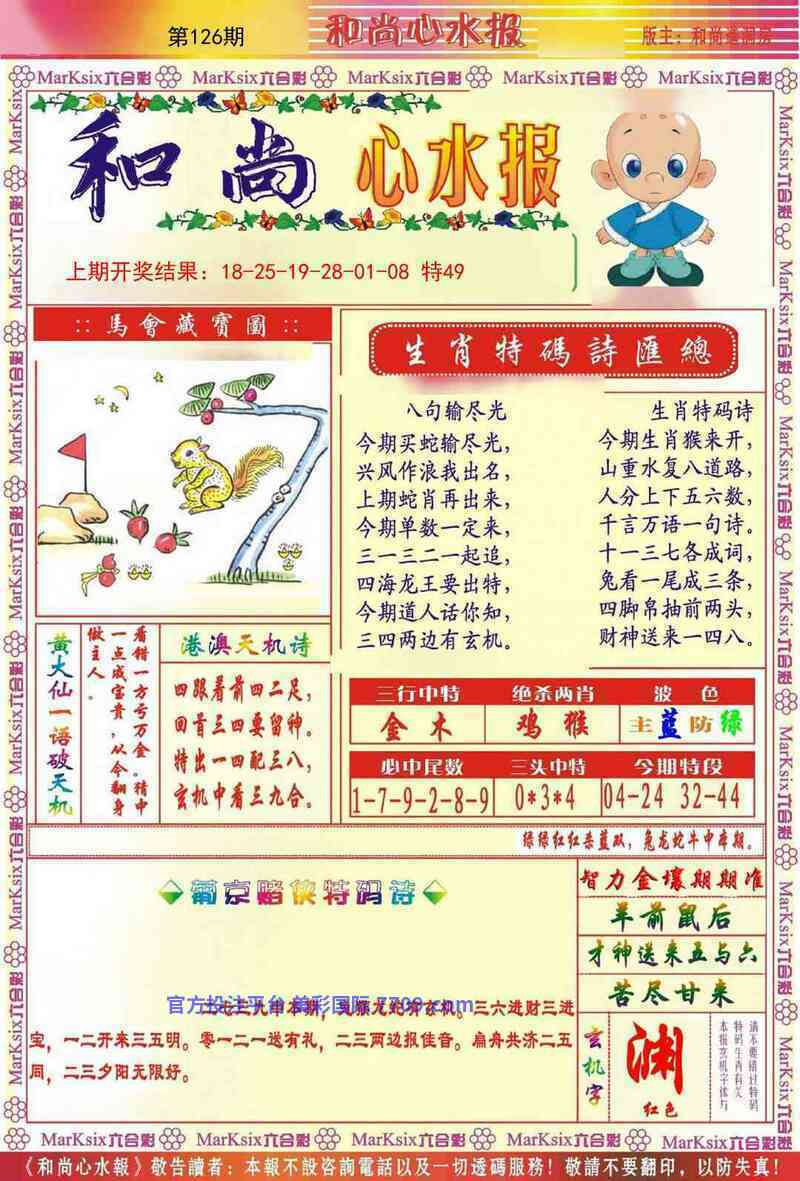 第126期
和尚心水报
版主：和尚
MarKsix六合彩 MarKsix六合彩 MarKsix六合彩 MarKsix六合彩 MarKsix六合彩
和尚 心水报
上期开奖结果：18-25-19-28-01-08 特49
:: 馬會藏寶圖 ::
生肖特碼詩匯總
八句输尽光
今期买蛇输尽光，
兴风作浪我出名，
上期蛇肖再出来，
今期单数一定来，
三一三二一起追，
四海龙王要出特，
今期道人话你知，
三四两边有玄机。
生肖特码诗
今期生肖猴来开，
山重水复八道路，
人分上下五六数，
千言万语一句诗。
十一三七各成词，
兔看一尾成三条，
四脚帛抽前两头，
财神送来一四八。
黄大仙一语破天机
看错一方亏万金。精中
一点成宝贵，从今翻身
做主人。
港澳天机诗
四跟着前四二足，
回首三四要留神。
特出一四配三八，
玄机中看三九合。
三行中特 绝杀两肖 波 色
金 木 鸡 猴 主蓝防绿
必中尾数 三头中特 今期特段
1-7-9-2-8-9 0*3*4 04-24 32-44
绿绿红红杀蓝双，兔龙蛇牛中本期。
葡京赌侠特码诗
官方投注平台 美彩国际 7709.com
三六进财三进
宝，一二开来三五明。零一二一送有礼，二三两边报佳音。扁舟共济二五
同，二三夕阳无限好。
智力金壤期期准
羊前鼠后
才神送来五与六
苦尽甘来
玄机字
渊
红色
请不要错过特码
特码生肖有关
本报玄机字体与
MarKsix六合彩 MarKsix六合彩 MarKsix六合彩 MarKsix六合彩 MarKsix六合彩
《和尚心水報》敬告讀者：本報不設咨詢電話以及一切透碼服務！敬請不要翻印，以防失真！